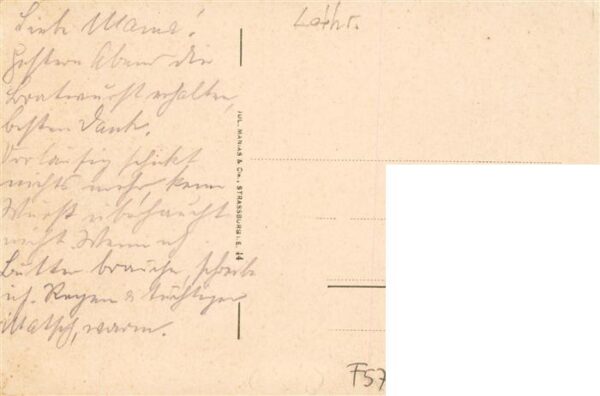 Liebe Mama!
Gestern Abend die
Bratwurst erhalten,
besten Dank.
Vorläufig schikt
nichts mehr, keine
Wurst überhaupt
nicht. Wenn ich
Butter brauche, schreibe
ich. Regen & tüchtiger
Matsch, warm.
Lothr.
JUL. MANIAS & Cie., STRASSBURG i. E. 14
F57